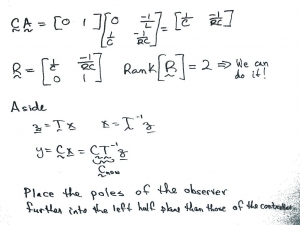 C A = [0 1] [0 -1/L; 1/C -1/RC] = [1/C -1/RC]
R = [1/C -1/RC; 0 1] Rank[R] = 2 ⇒ We can do it!
Aside
z = T x x = T⁻¹ z
y = C x = C T⁻¹ z
C new
Place the poles of the observer
further into the left half plane than those of the controller